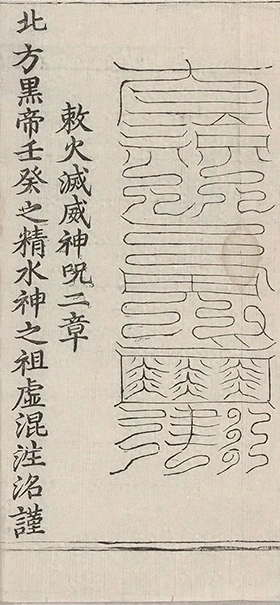 敕火滅威神呪二章
北方黒帝壬癸之精水神之祖虛混泩洺謹